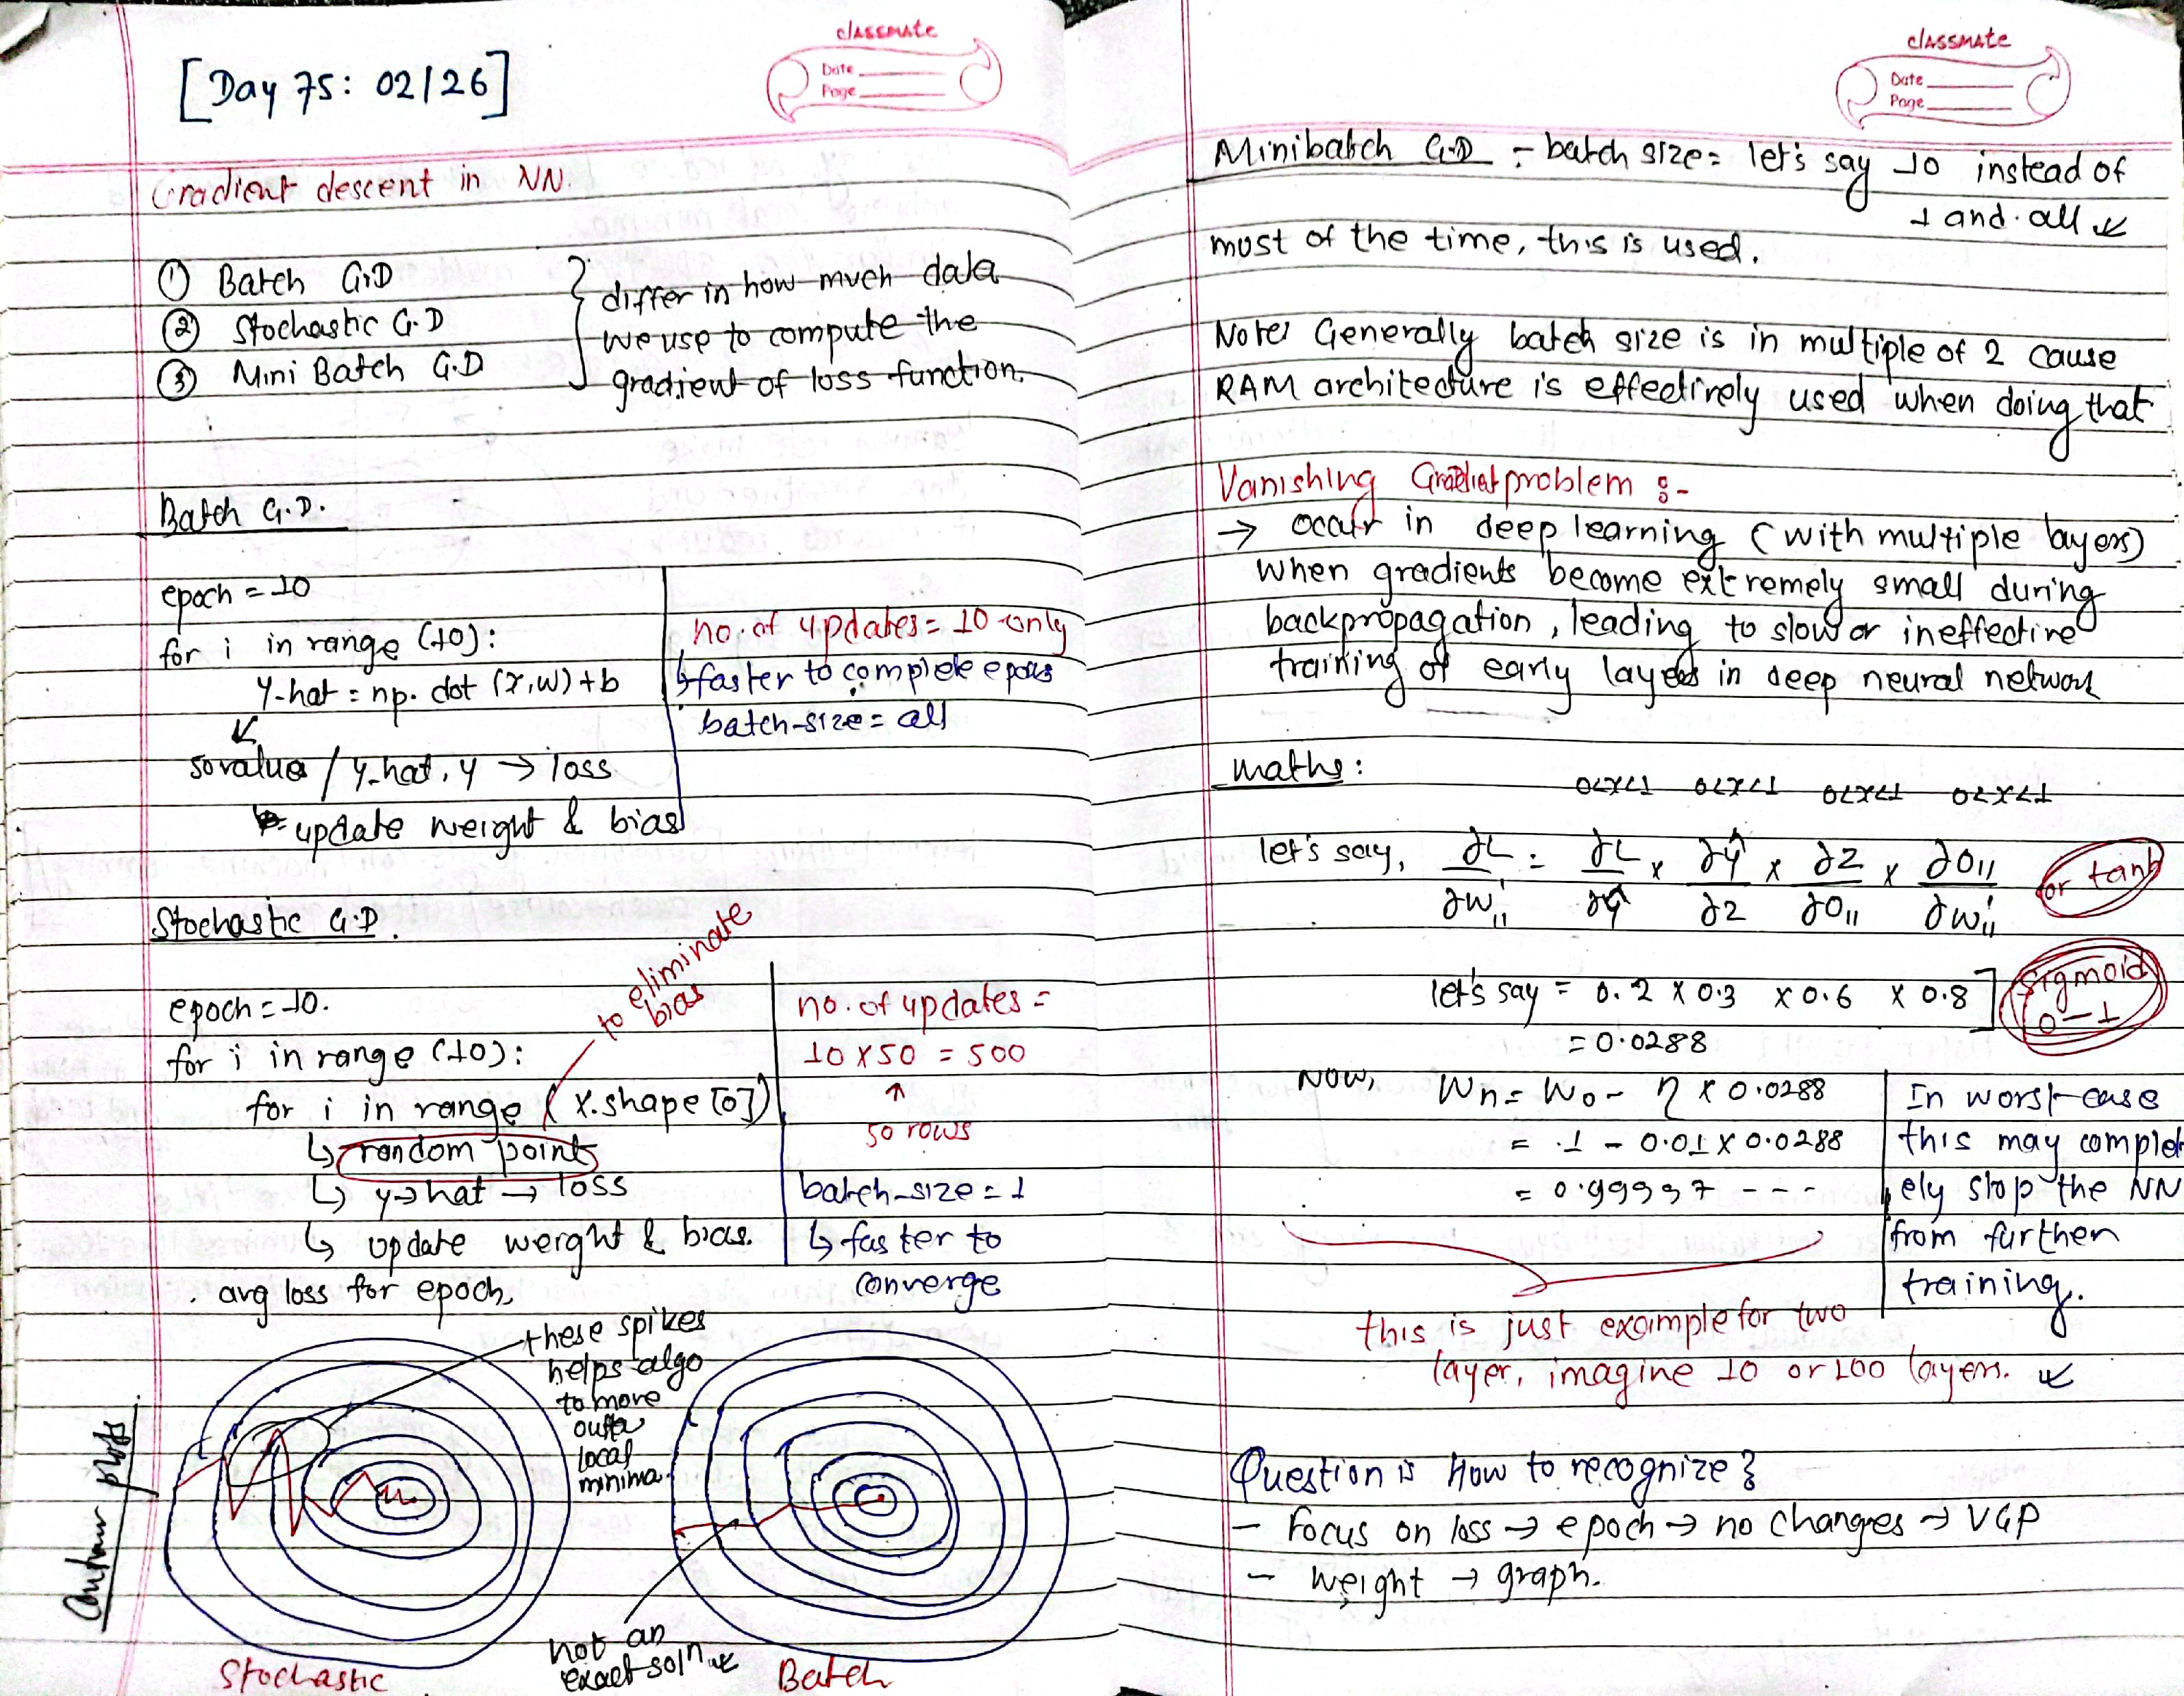 classmate
Date
Page
[Day 75: 02/26]
Gradient descent in NN.
① Batch G.D
② Stochastic G.D
③ Mini Batch G.D
differ in how much data
we use to compute the
gradient of loss function.
Batch G.D.
epoch = 10
for i in range (10):
y-hat = np. dot (x,w)+b
50 values / y-hat, y → loss
update weight & bias
no. of updates = 10 only
↳ faster to complete epocs
batch-size = all
Stochastic G.D.
to eliminate
bias
epoch = 10.
for i in range (10):
for i in range (X.shape[0])
↳ random point
↳ y→hat → loss
↳ update weight & bias.
avg loss for epoch.
no. of updates =
10 x 50 = 500
↑
50 rows
batch-size = 1
↳ faster to
converge
these spikes
helps algo
to move
outta
local
minima.
Contour plots.
Stochastic
not an
exact soln
Batch
classmate
Date
Page
Minibatch G.D - batch size = let's say 10 instead of
1 and all
most of the time, this is used.
Note: Generally batch size is in multiple of 2 cause
RAM architecture is effectively used when doing that
Vanishing Gradient problem :-
→ occur in deep learning (with multiple layers)
when gradients become extremely small during
backpropagation, leading to slow or ineffective
training of early layers in deep neural network
maths:
0<x<1 0<x<1 0<x<1 0<x<1
let's say, ∂L/∂w'₁₁ = ∂L/∂ŷ x ∂ŷ/∂z x ∂z/∂O₁₁ x ∂O₁₁/∂w'₁₁
or tanh
let's say = 0.2 x 0.3 x 0.6 x 0.8]
sigmoid
0-1
= 0.0288
NOW, Wn = Wo - η x 0.0288
= 1 - 0.01 x 0.0288
= 0.99997 ---
In worst case
this may complet
ely stop the NN
from further
training.
this is just example for two
layer, imagine 10 or 100 layers.
Question is How to recognize?
- Focus on loss → epoch → no changes → VGP
- weight → graph.